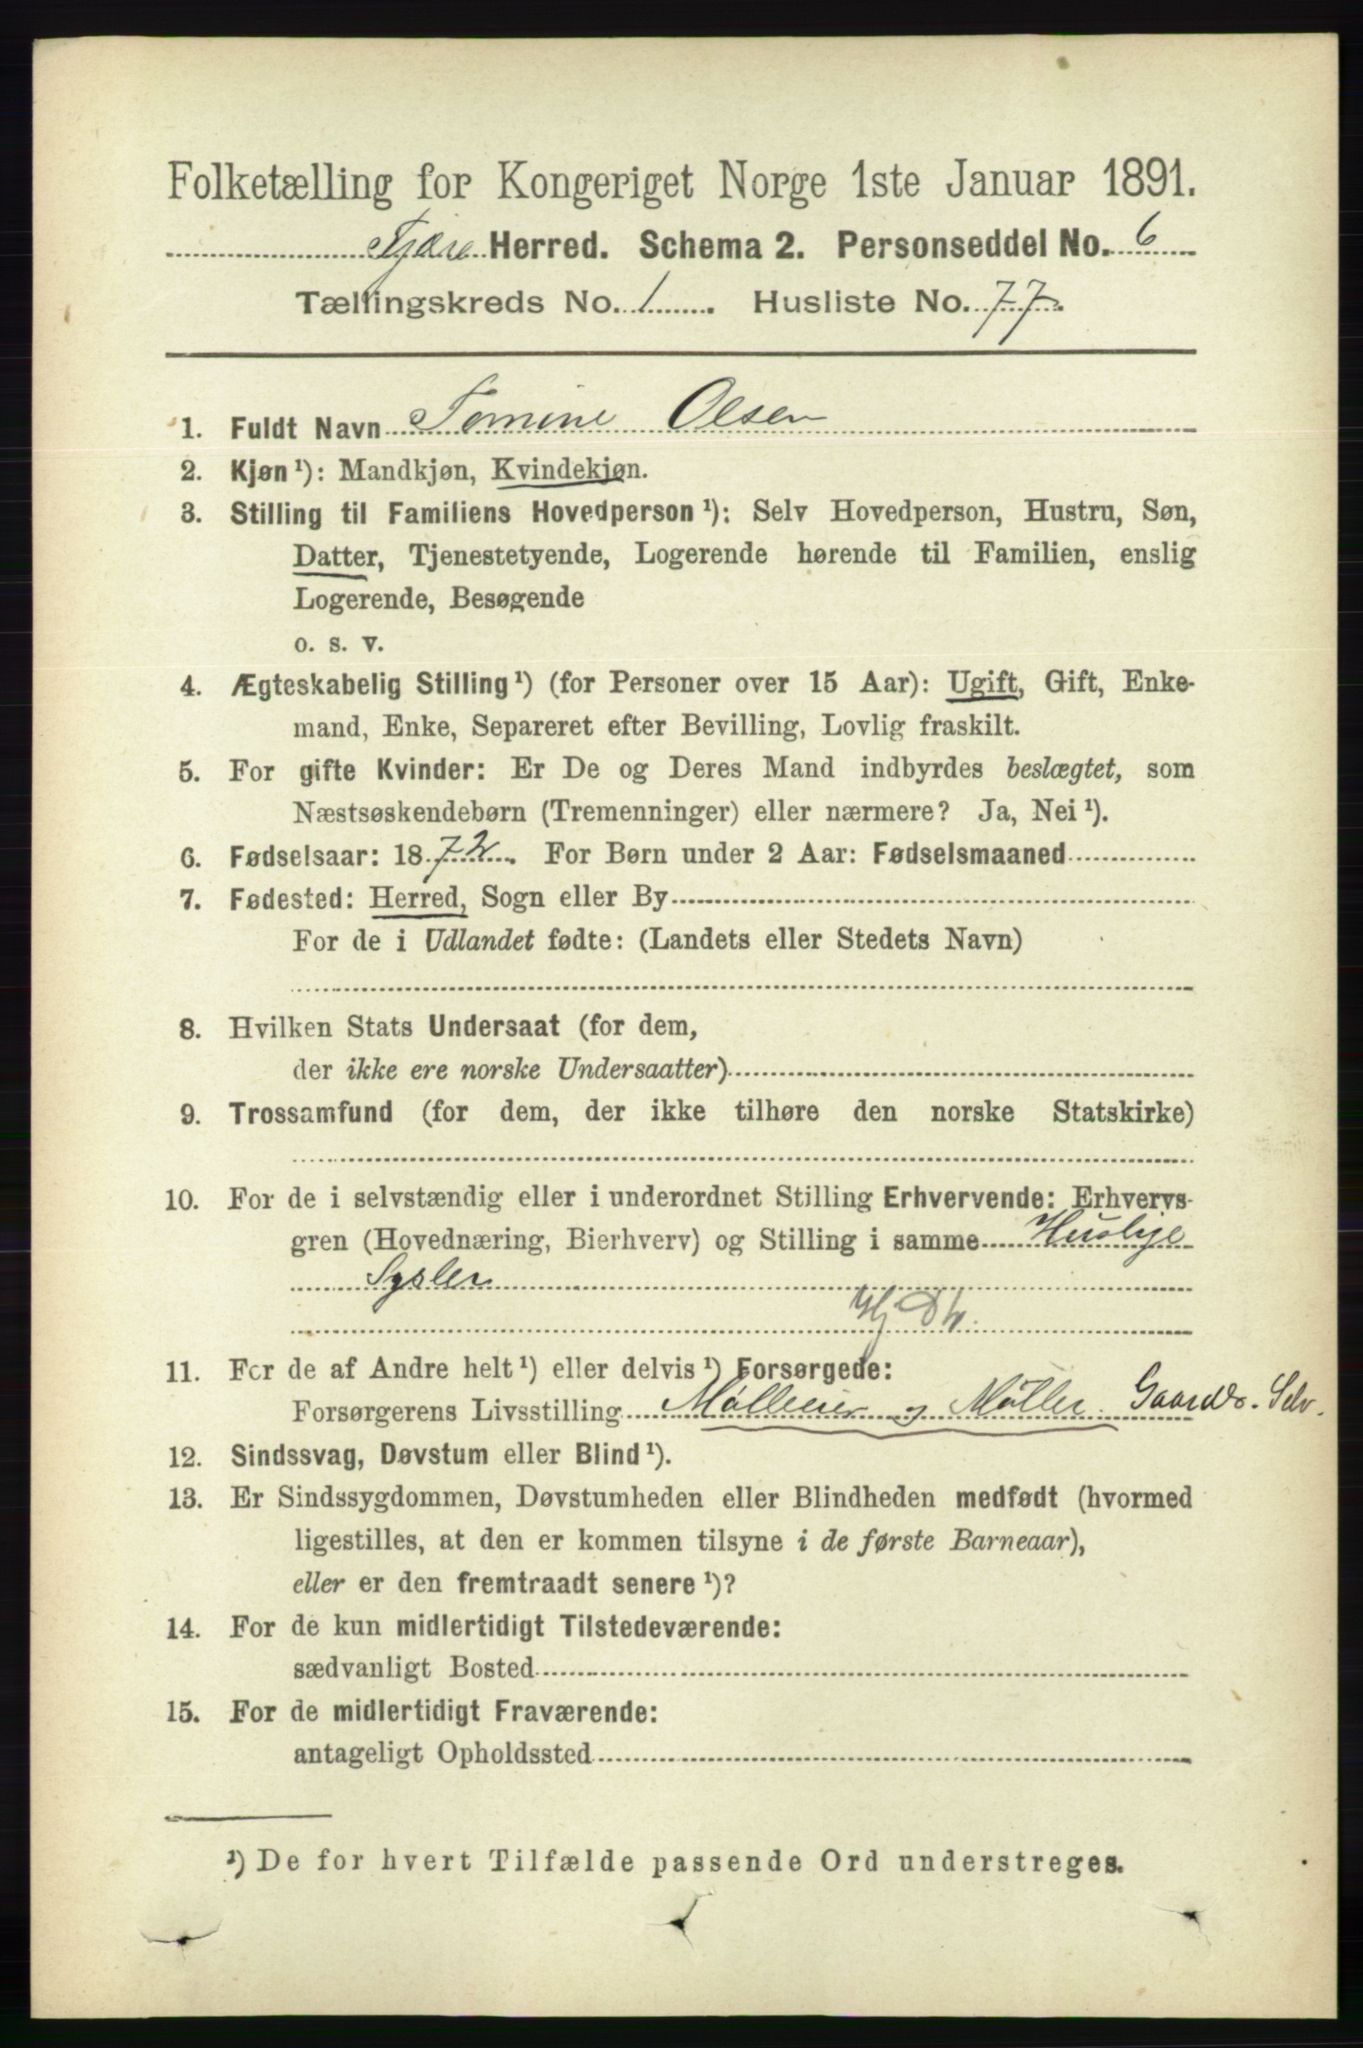 Folketælling for Kongeriget Norge 1ste Januar 1891.
Fjære Herred. Schema 2. Personseddel No. 6
Tællingskreds No. 1. Husliste No. 77.
1. Fuldt Navn Tomine Olsen
2. Kjøn¹): Mandkjøn, Kvindekjøn.
3. Stilling til Familiens Hovedperson¹): Selv Hovedperson, Hustru, Søn,
Datter, Tjenestetyende, Logerende hørende til Familien, enslig
Logerende, Besøgende
o. s. v.
4. Ægteskabelig Stilling¹) (for Personer over 15 Aar): Ugift, Gift, Enke-
mand, Enke, Separeret efter Bevilling, Lovlig fraskilt.
5. For gifte Kvinder: Er De og Deres Mand indbyrdes beslægtet, som
Næstsøskendebørn (Tremenninger) eller nærmere? Ja, Nei¹).
6. Fødselsaar: 1872. For Børn under 2 Aar: Fødselsmaaned
7. Fødested: Herred, Sogn eller By
For de i Udlandet fødte: (Landets eller Stedets Navn)
8. Hvilken Stats Undersaat (for dem,
der ikke ere norske Undersaatter)
9. Trossamfund (for dem, der ikke tilhøre den norske Statskirke)
10. For de i selvstændig eller i underordnet Stilling Erhvervende: Erhvervs-
gren (Hovednæring, Bierhverv) og Stilling i samme Huslige
Sysler
Hj
11. For de af Andre helt¹) eller delvis¹) Forsørgede:
Forsørgerens Livsstilling Mølleeier og Møller. Gaardbr. Selv.
12. Sindssvag, Døvstum eller Blind¹).
13. Er Sindssygdommen, Døvstumheden eller Blindheden medfødt (hvormed
ligestilles, at den er kommen tilsyne i de første Barneaar),
eller er den fremtraadt senere¹)?
14. For de kun midlertidigt Tilstedeværende:
sædvanligt Bosted
15. For de midlertidigt Fraværende:
antageligt Opholdssted
¹) De for hvert Tilfælde passende Ord understreges.